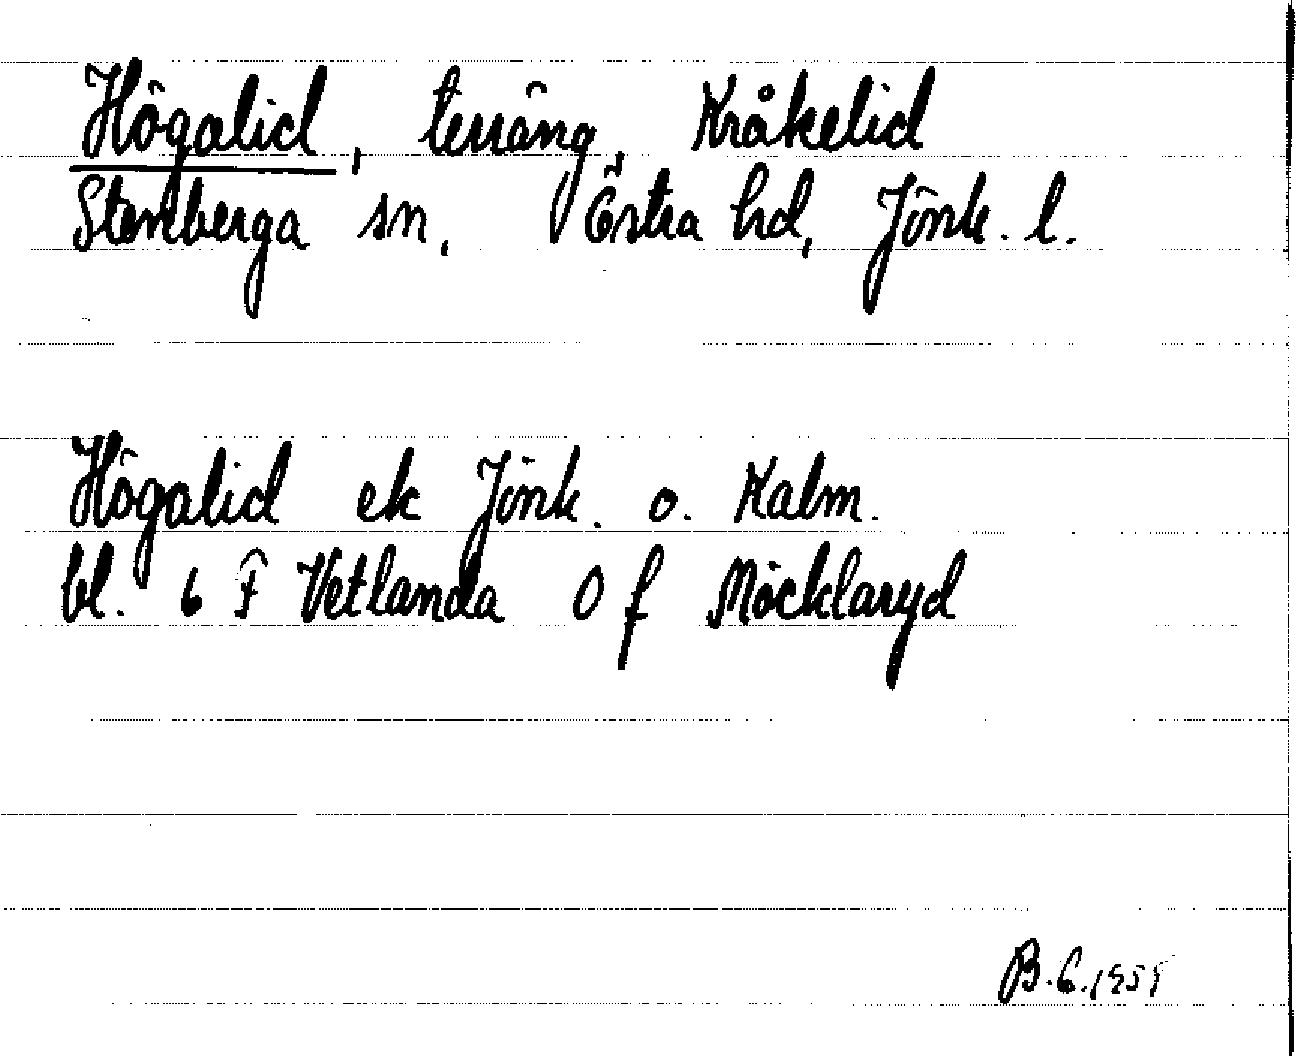 Högalid, terräng, Kråkelid
Stenberga sn, Östra hd, Jönk. l.
Högalid ek Jönk. o. Kalm.
bl. 6 F Vetlanda 0 f Möcklaryd
B.C.